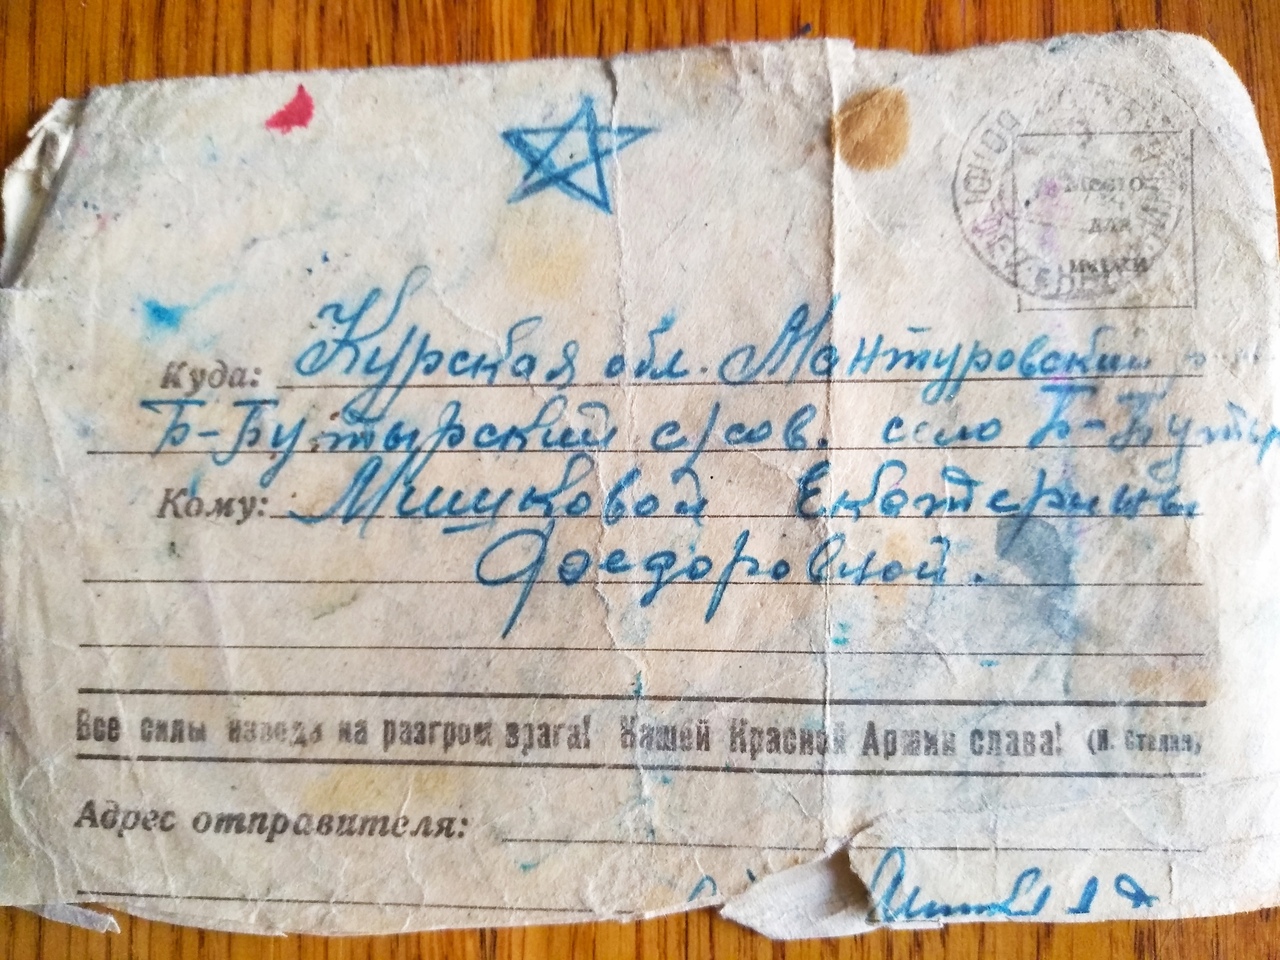 Место
для
марки
Куда: Курская обл. Мантуровский
Б-Бутырский с/сов. село Б-Бутыр
Кому: Мишуковой Екатерины
Федоровной.
Все силы народа на разгром врага! Нашей Красной Армии слава! (И. Сталин)
Адрес отправителя: